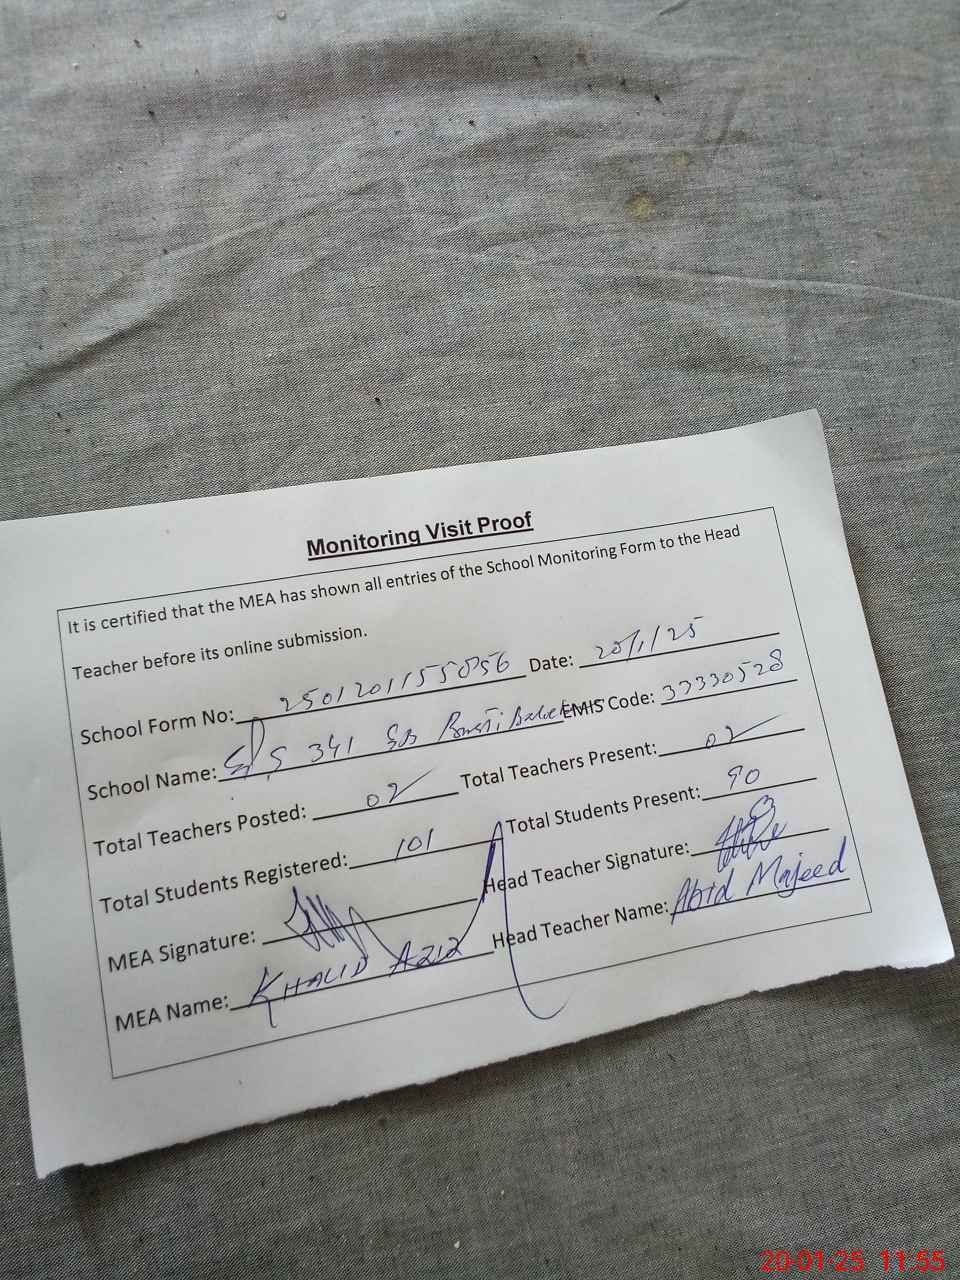 Monitoring Visit Proof
It is certified that the MEA has shown all entries of the School Monitoring Form to the Head
Teacher before its online submission.
School Form No: 2501201155056 Date: 20/1/25
School Name: 341 Basti EMIS Code: 33330528
Total Teachers Posted: 02 Total Teachers Present: 02
Total Students Registered: 101 Total Students Present: 90
MEA Signature: Head Teacher Signature:
MEA Name: KHALID AZIZ Head Teacher Name: Abid Majeed
20-01-25 11:55